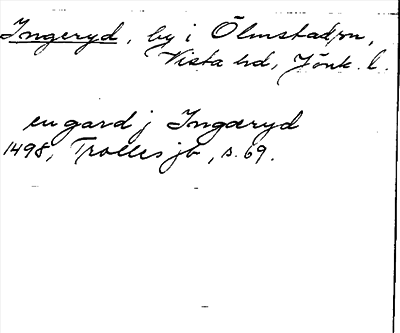 Ingeryd, by i Ölmstad sn,
Vista hd, Jönk. l.
en gard j Ingæryd
1498, Trolles jb, s. 69.